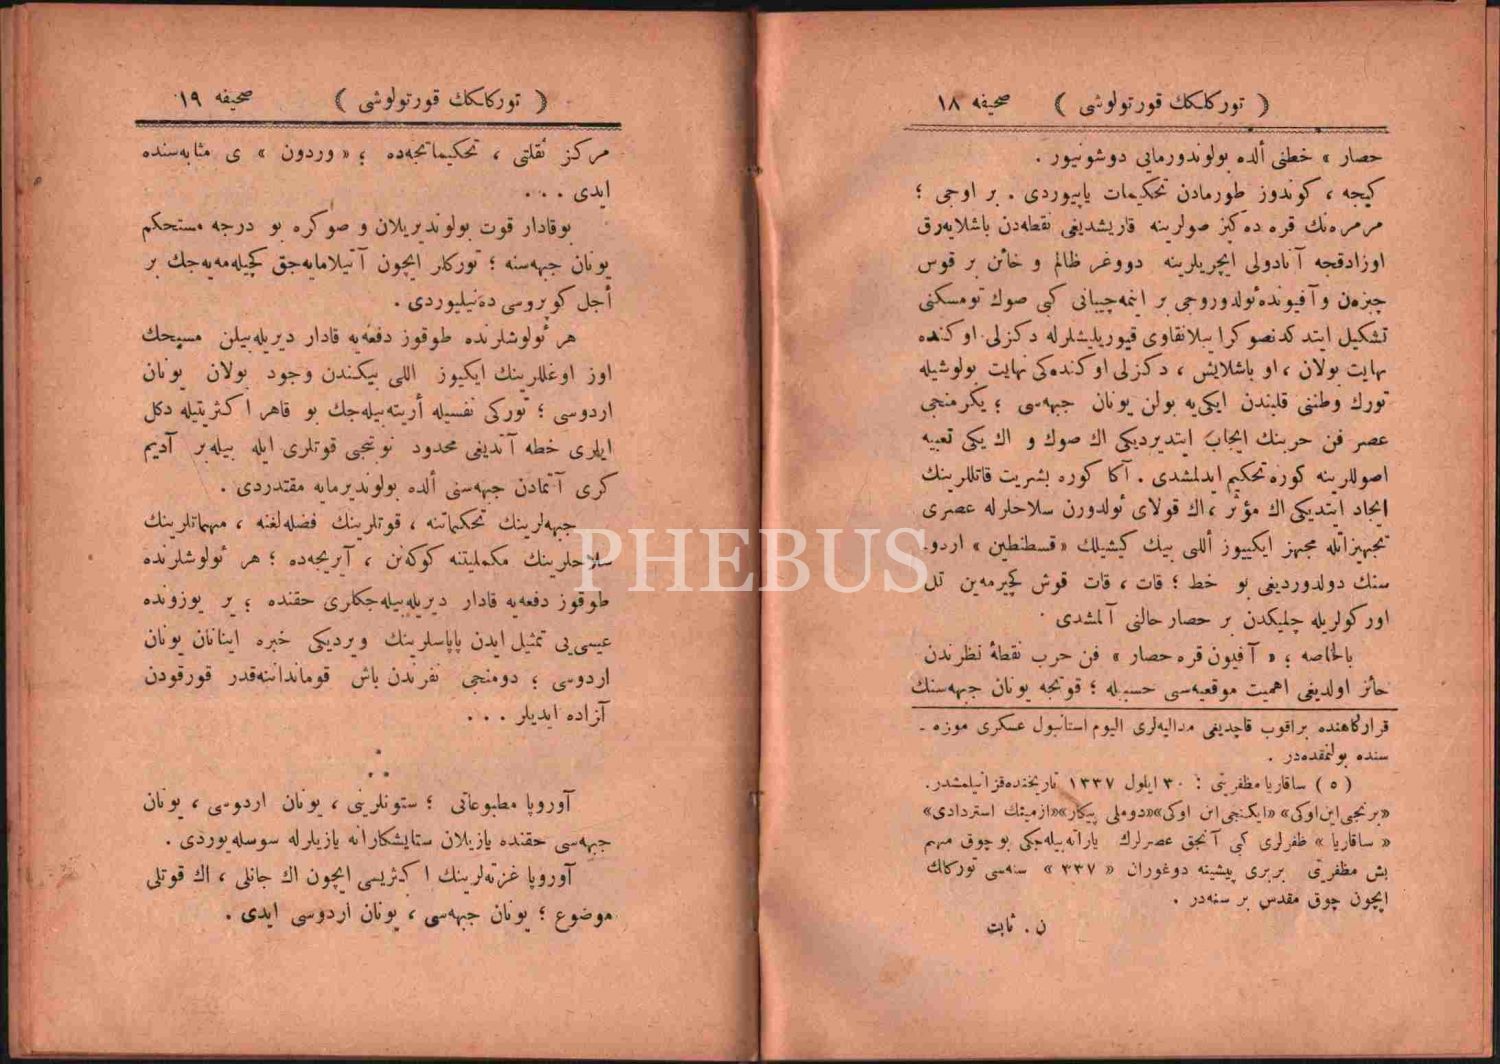 صحیفه ١٨ ﴿ تورکلکك قورتولوشی ﴾
حصار » خطنی ألده بولوندورمایی دوشونیور .
کیجه ، کوندوز طورمادن تحکیمات یاپیوردی . بر اوجی ؛
مرمره‌نك قره ده‌کیز صولرینه قاریشدیغی نقطه‌دن باشلایه‌رق
اوزادقجه آنادولی ایچریلرینه دووغر ظالم و خائن بر قوس
چیزه‌ن و آفیونده ئولدوروجی بر ایمه‌چیبانی کبی صوك تومسکنی
تشکیل ایتدکدنصوکرا ییلانقاوی قیوریلیشلرله دکزلی اوکنده
نهایت بولان ، او باشلایش ، دکزلی اوکنده‌کی نهایت بولوشیله
تورك وطننی قلبندن ایکی‌یه بولن یونان جبهه‌سی ؛ یکرمنجی
عصر فن حربنك ایجاب ایتدیردیکی اك صوك و اك یکی تعبیه
اصوللرینه کوره تحکیم ایدلمشدی . آکا کوره بشریت قاتللرینك
ایجاد ایتدیکی اك مؤثر ، اك قولای ئولدورن سلاحلرله عصری
تجهیزاتله مجهز ایکییوز أللی بیك کیشیلك «قسطنطین» اردو-
سنك دولدوردیغی بو خط ؛ قات ، قات قوش کچیرمه‌ین تل
اورکولریله چلیکدن بر حصار حالنی آلمشدی .
بالخاصه ؛ « آفیون قره حصار » فن حرب نقطهٔ نظرندن
حائز اولدیغی اهمیت موقعیه‌سی حسبیله ؛ قوتجه یونان جبهه‌سنك
قرارگاهنده براقوب قاچدیغی مدالیه‌لری الیوم استانبول عسکری موزه -
سنده بولنمقده‌در .
( ٥ ) ساقاریا مظفریتی : ٣٠ ایلول ١٣٣٧ تاریخنده قزانیلمشدر.
«برنجی این اوکی» «ایکنجی این اوکی» «دوملی پیکار» «ازمیتك استردادی»
« ساقاریا » ظفرلری کبی آنجق عصرلرك یاراته‌بیله‌جکی بو چوق مهم
بش مظفریتی بربری پیشینه دوغوران « ٣٣٧ » سنه‌سی تورکلك
ایچون چوق مقدس بر سنه‌در .
ن . ثابت
صحیفه ١٩ ﴿ تورکلکك قورتولوشی ﴾
مرکز ثقلتی ، تحکیماتجه‌ده ؛ « وردون » ی مثابه‌سنده
ایدی . . .
بوقادار قوت بولوندیریلان و صوکره بو درجه مستحکم
یونان جبهه‌سنه ؛ تورکلر ایچون آتیلامایه‌جق کچیله‌مه‌یه‌جك بر
أجل کوپروسی ده‌نیلیوردی .
هر ئولوشلرنده طوقوز دفعه‌یه قادار دیریله‌بیلن مسیحك
اوز اوغللرینك ایکیوز اللی بیکندن وجود بولان یونان
اردوسی ؛ تورکی نفسیله أریته‌بیله‌جك بو قاهر اکثریتیله دکل
ایلری خطه آتدیغی محدود نوبتجی قوتلری ایله بیله‌بر آدیم
کری آتمادن جبهه‌سنی ألده بولوندیرمایه مقتدردی .
جبهه‌لرینك تحکیماتنه ، قوتلرینك فضله‌لغنه ، مهماتلرینك
سلاحلرینك مکملیتنه کوکه‌نن ، آیریجه‌ده ؛ هر ئولوشلرنده
طوقوز دفعه‌یه قادار دیریله‌بیله‌جکلری حقنده ؛ یر یوزونده
عیسی‌یی تمثیل ایدن پاپاسلرینك ویردیکی خبره اینانان یونان
اردوسی ؛ دومنجی نفرندن باش قوماندانه‌قدر قورقودن
آزاده ایدیلر . . .
. . .
آوروپا مطبوعاتی ؛ ستونلرینی ، یونان اردوسی ، یونان
جبهه‌سی حقنده یازیلان ستایشکارانه یازیلرله سوسله‌یوردی .
آوروپا غزته‌لرینك اکثریسی ایچون اك جانلی ، اك قوتلی
موضوع ؛ یونان جبهه‌سی ، یونان اردوسی ایدی .
PHEBUS